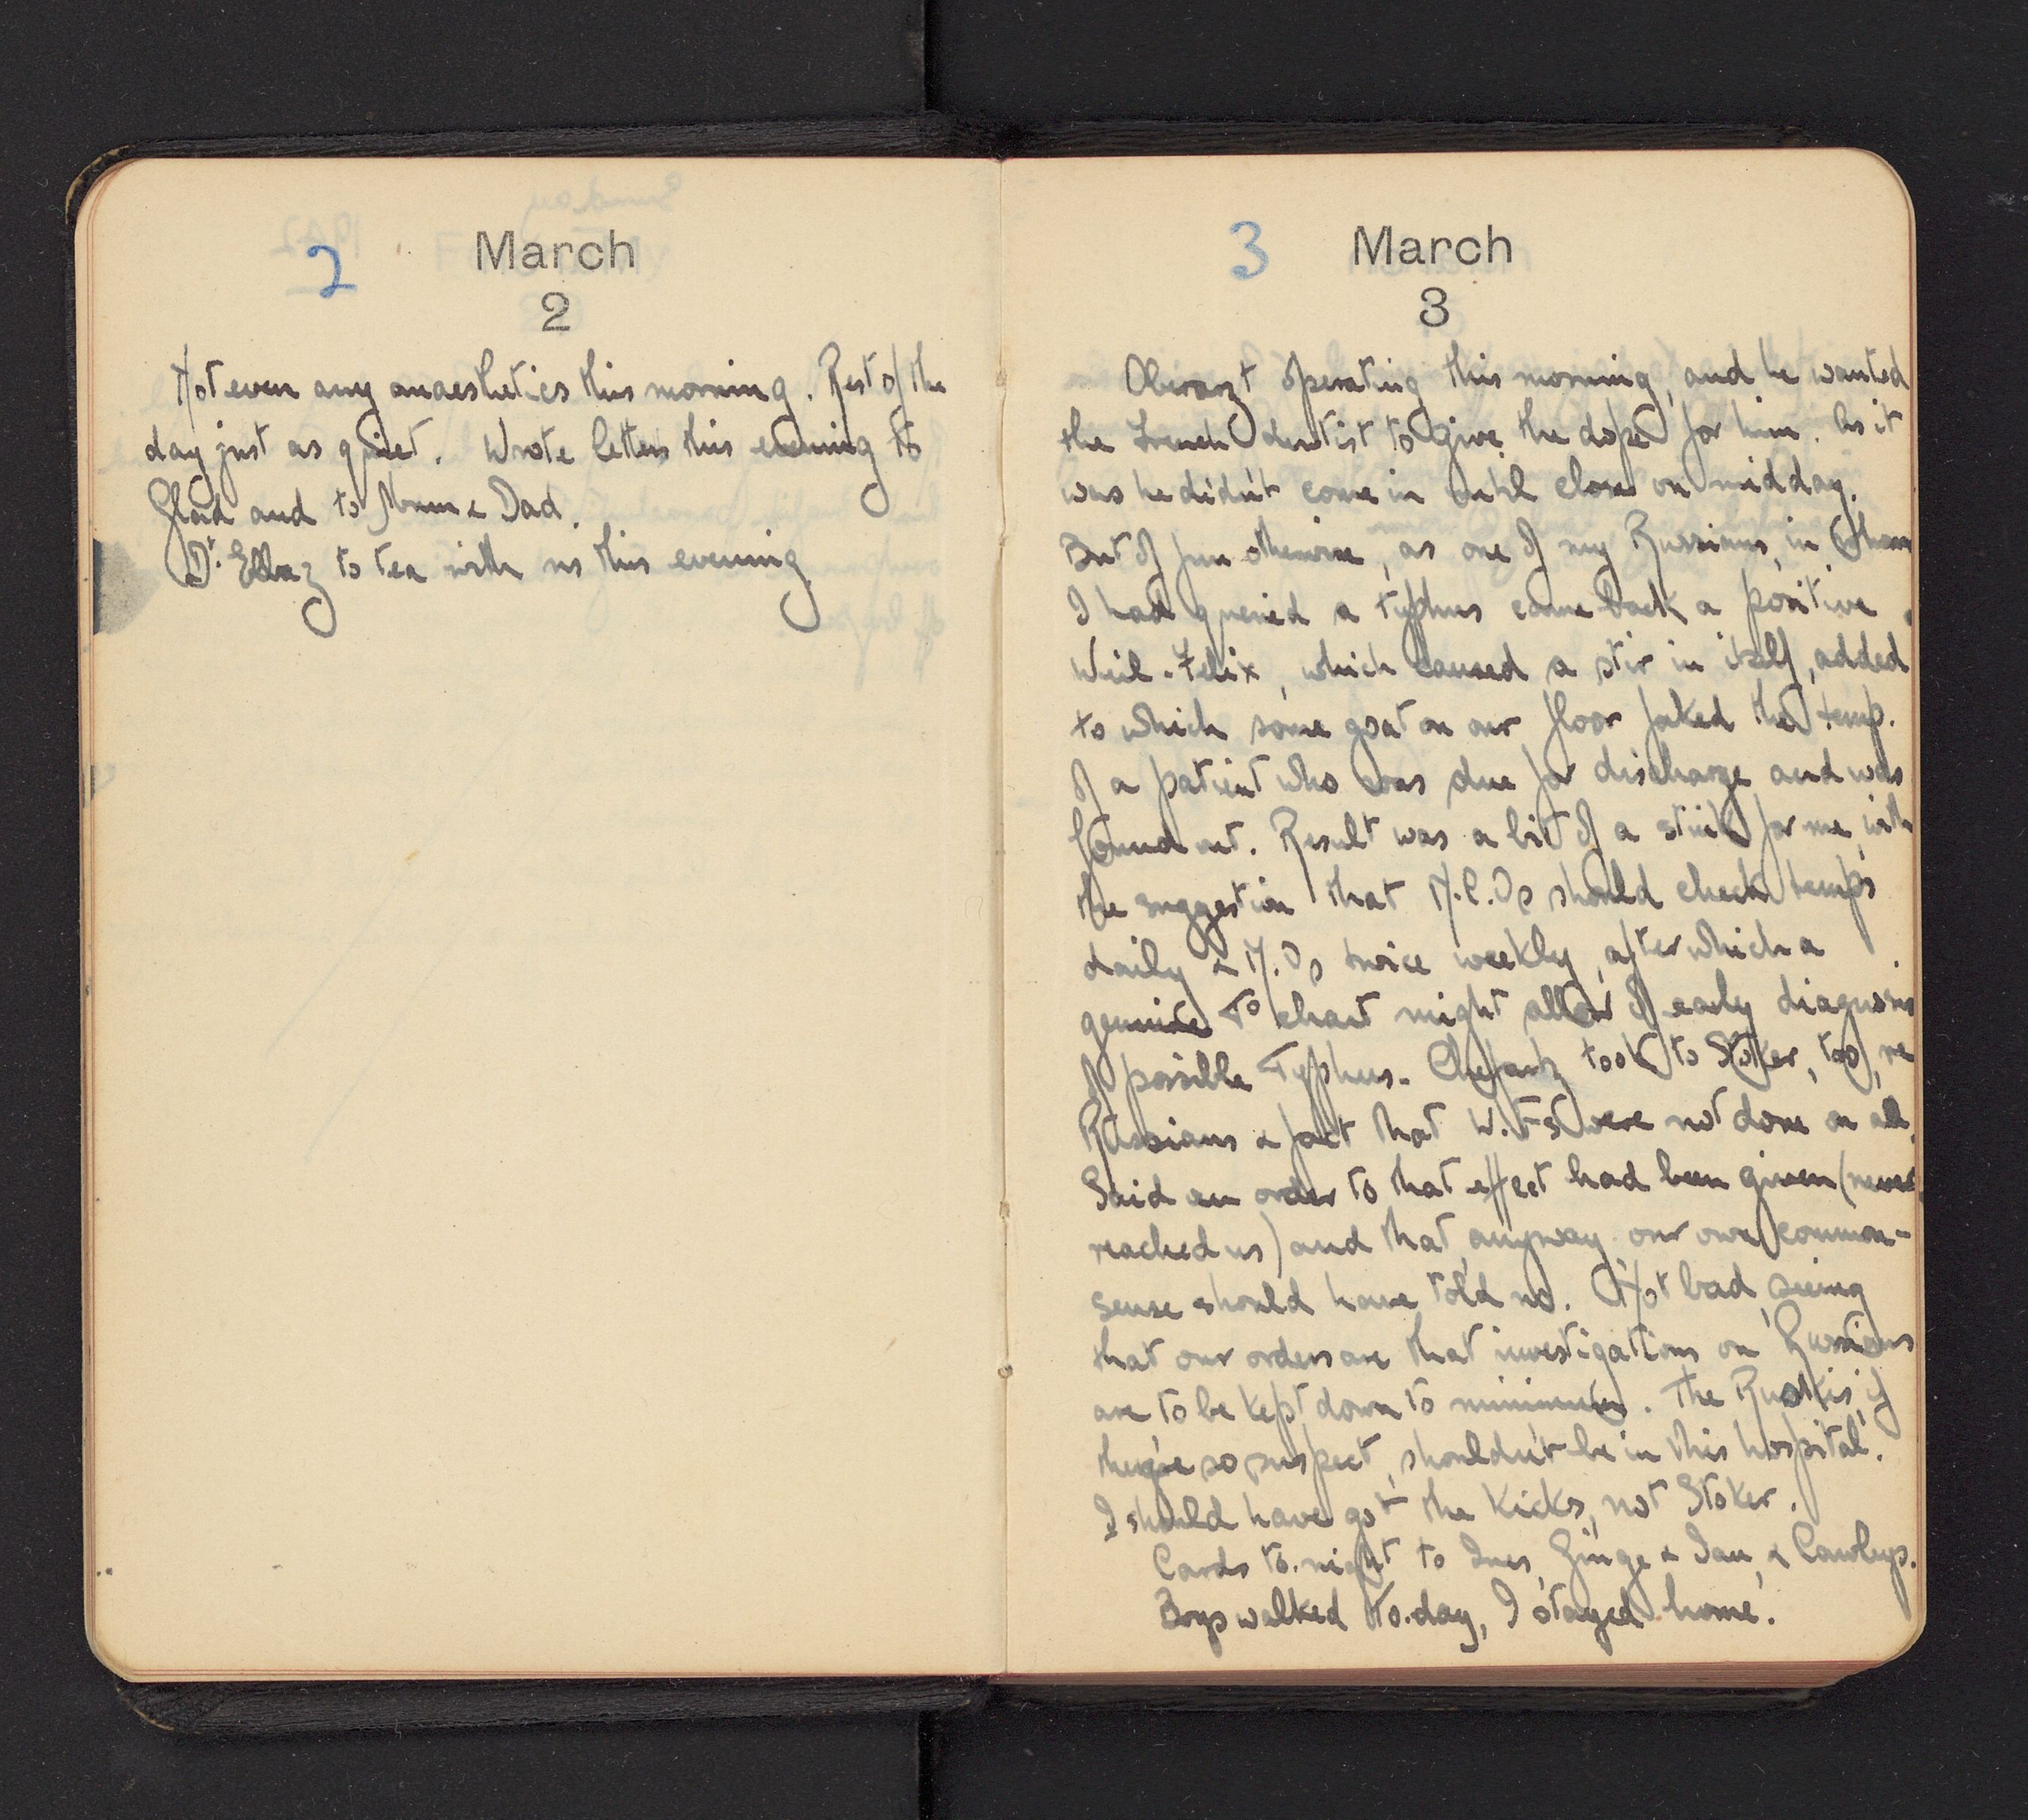 2 March
2
Not even any anaesthetics this morning. Rest of the
day just as quiet. Wrote letters this evening to
Glad and to Mum & Dad.
Dr. Ellaz to tea with us this evening.
3 March
3
Oberarzt operating this morning, and he wanted
the French dentist to give the dope for him. As it
was he didn't come in until close on midday.
But of fun otherwise, as one of my Russians, in whom
I had queried a typhus came back a positive
Weil-Felix, which caused a stir in itself, added
to which some goat on our floor faked the temp.
of a patient who was due for discharge and was
found out. Result was a bit of a stink for me, with
the suggestion that N.C.Os should check temps
daily & M.Os twice weekly, after which a
genuine T° chart might allow of early diagnosis
of possible Typhus. Chefarzt took to Stoker, too, re
Russians & fact that W.Fs were not done on all.
Said an order to that effect had been given (never
reached us) and that, anyway, our own common-
sense should have told us. Not bad, seeing
that our orders are that investigations on Russians
are to be kept down to minimum. The Ruskis, if
they're so suspect, shouldn't be in this hospital.
I should have got the kicks, not Stoker.
Cards to-night to Ines, Ginge & Ian, & Cawleys.
Boys walked to-day, I stayed home.